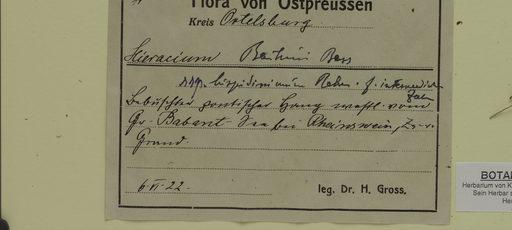 Flora von Ostpreussen
Kreis Ortelsburg
Hieracium Bauhini Bess
ssp. hispidissimum Rehm. f.
Gebüschter pontischer Hang westl. vom
Gr. Babant-See bei Rheinswein, Kr.
6.VI.22. leg. Dr. H. Gross.
BOTAN
Herbarium von K
Sein Herbar